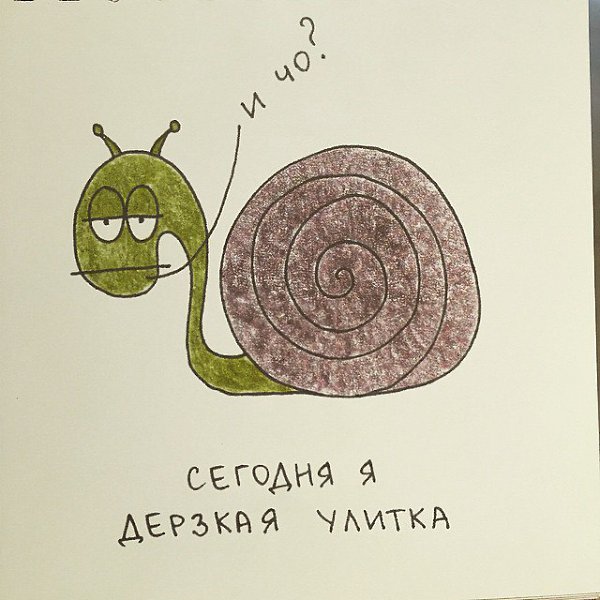 И ЧО?
СЕГОДНЯ Я
ДЕРЗКАЯ УЛИТКА